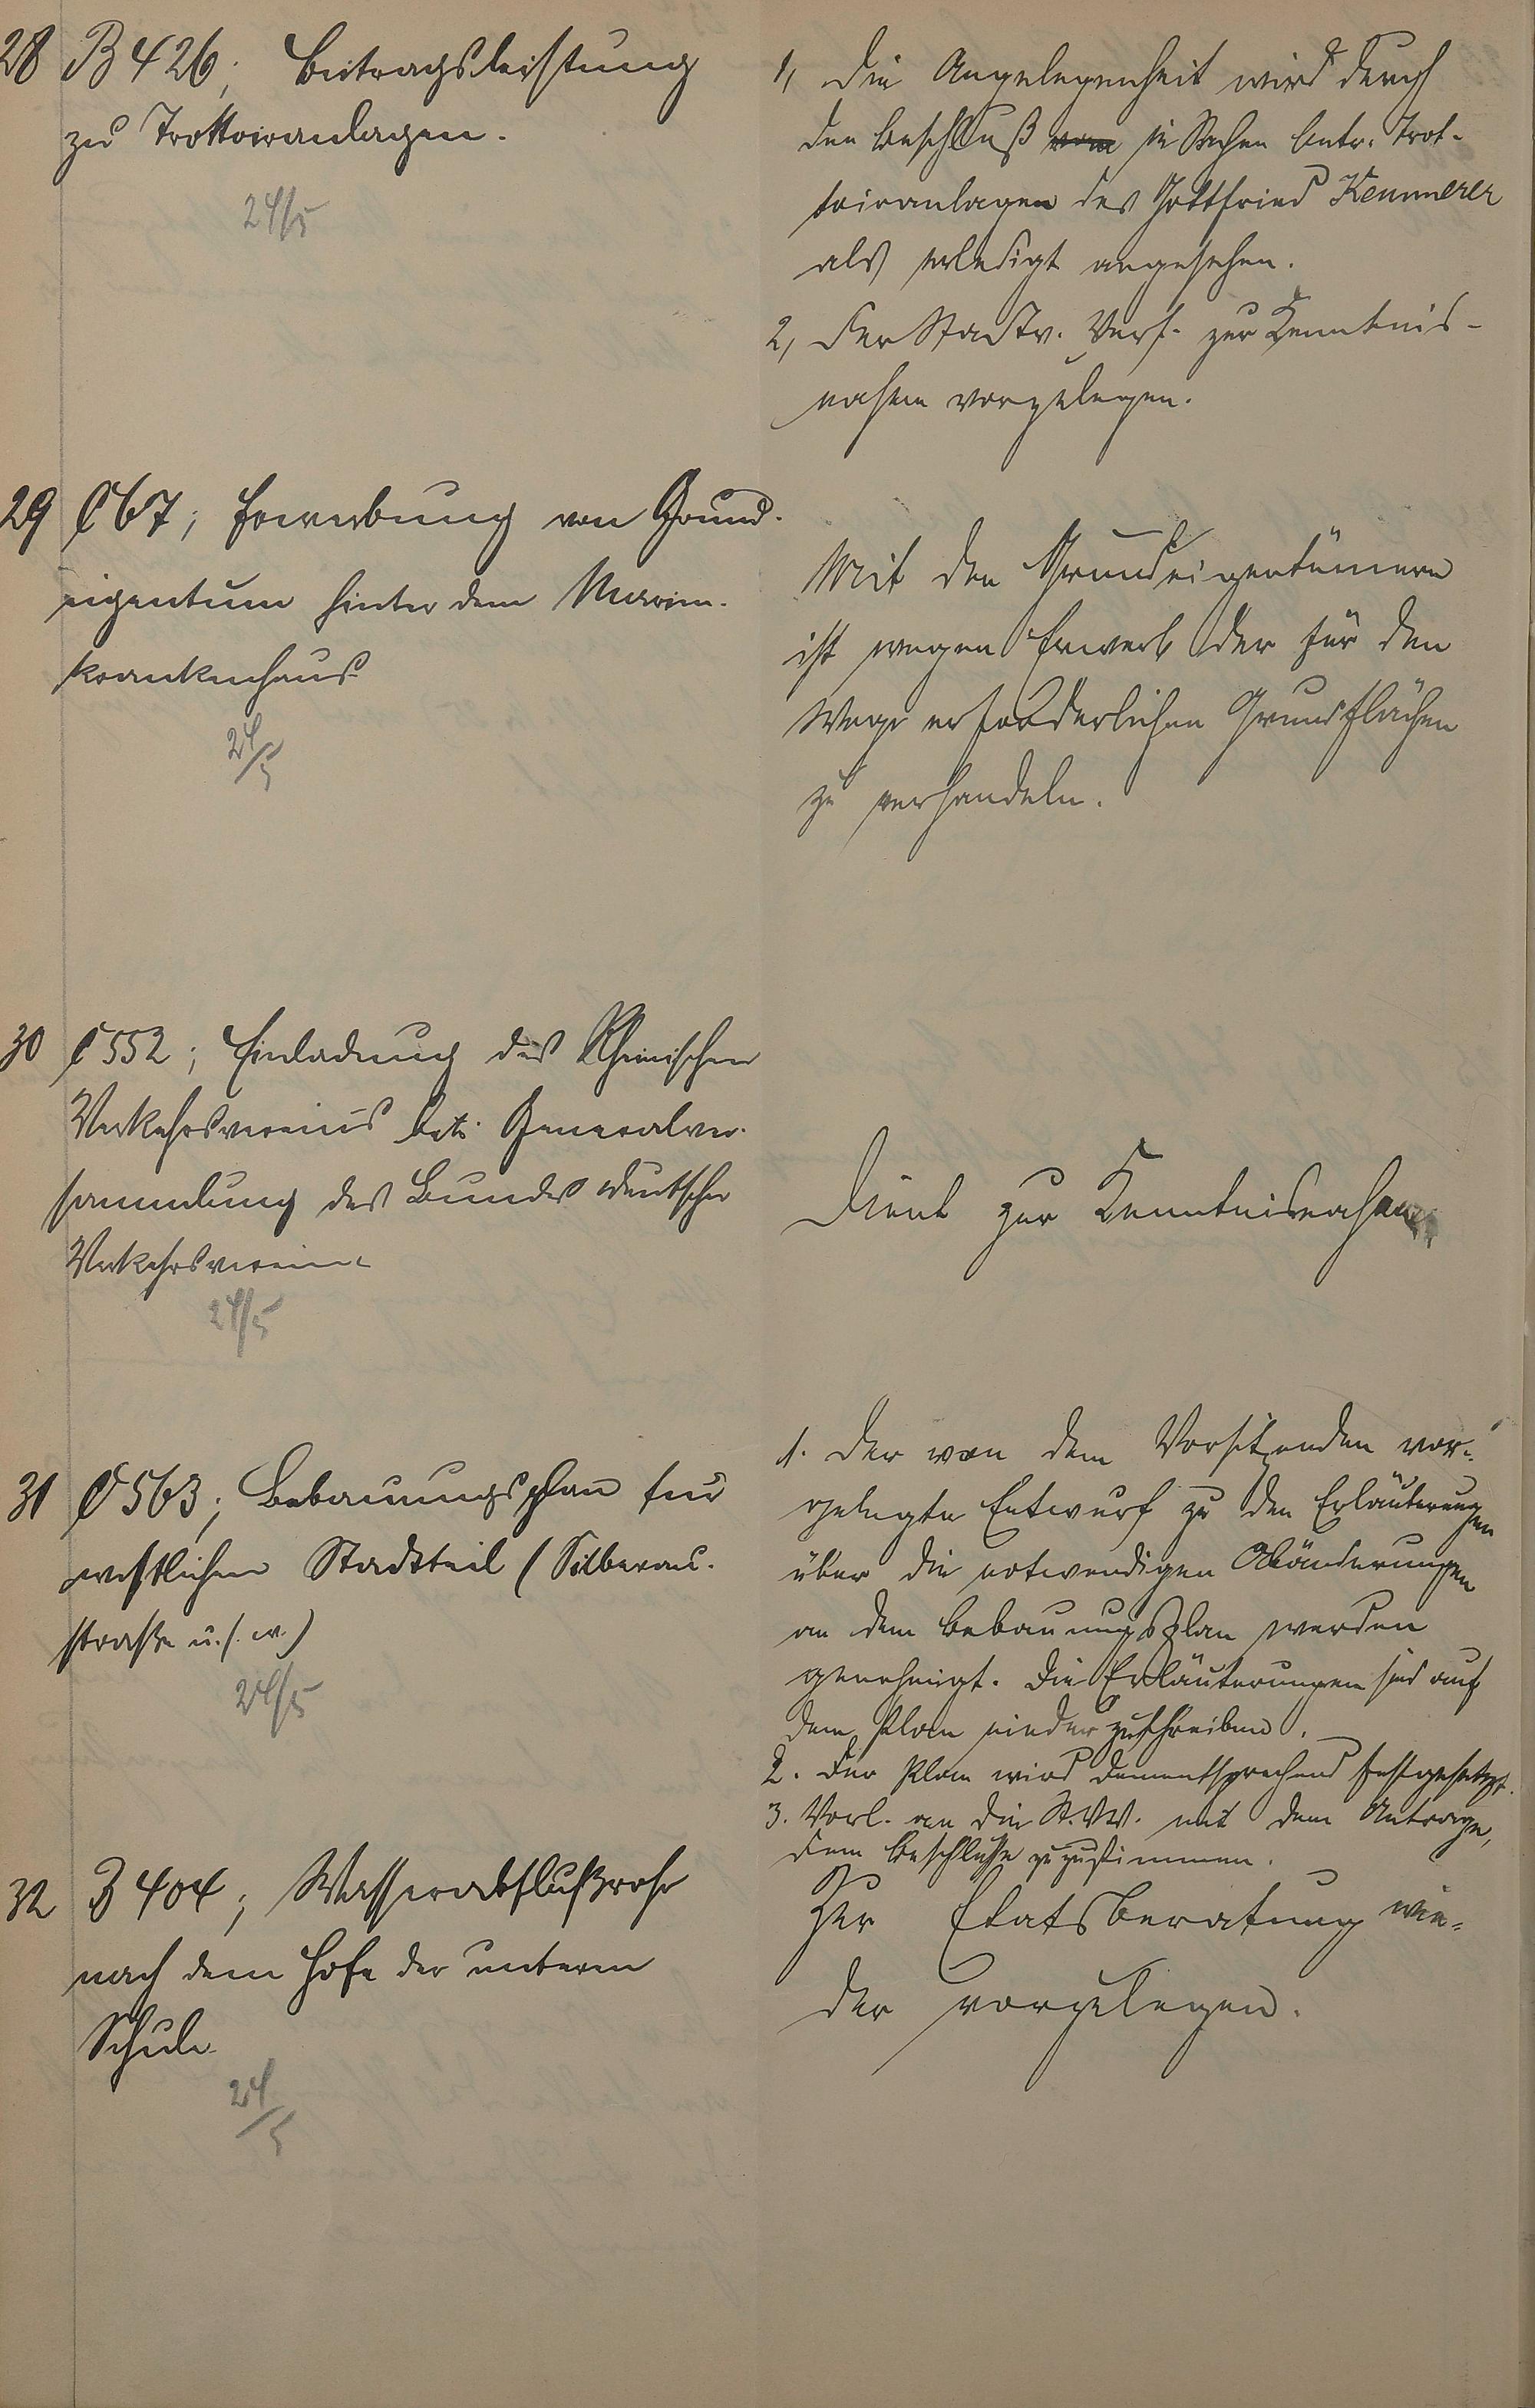 28 B 426; Beitragsleistung
zu Trottoiranlagen.
24/5
1, Die Angelegenheit wird durch
den Beschluß vom in Sachen betr. Trot-
toiranlagen des Gottfried Kemmerer
als erledigt angesehen.
2, Der Stadtv. Vers. zur Kenntnis-
nahme vorzulegen.
29 C 67; Erwerbung von Grund-
eigentum hinter dem Marien-
krankenhaus
24/5
Mit den Grundeigentümern
ist wegen Erwerb der für den
Weg erforderlichen Grundflächen
zu verhandeln.
30 C 552; Einladung des Rheinischen
Verkehrsvereins betr. Generalver-
sammlung des Bundes deutscher
Verkehrsvereine
24/5
Dient zur Kenntnisnahme
31 C 563; Bebauungsplan für
westlichen Stadtteil (Silberau-
straße u.s.w.)
24/5
1. Der von dem Vorsitzenden vor-
gelegte Entwurf zu den Erläuterungen
über die notwendigen Abänderungen
an dem Bebauungsplan werden
genehmigt. Die Erläuterungen sind auf
dem Plan niederzuschreiben.
2. Der Plan wird dementsprechend festgesetzt.
3. Vorl. an die St.V.V. mit dem Antrage,
dem Beschlusse zuzustimmen.
32 B 404; Wasserabflußrohr
nach dem Hofe der unteren
Schule
24/5
Zur Etatsberatung wie-
der vorzulegen.